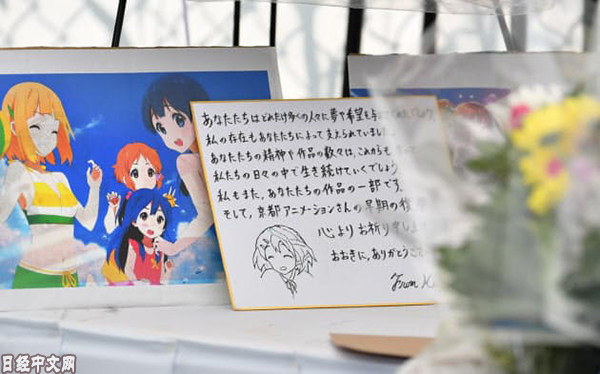 あなたたちはどれだけ多くの人々に夢や希望を与
私の存在もあなたたちによって支えられていました
あなたたちの精神や作品の数々は、これからも
私たちの日々の中で生き続けていくでしょう
私もまた、あなたたちの作品の一部です。
そして、京都アニメーションさんの早期の復
心よりお祈り申し
おおきに、ありがとうご
From
日经中文网